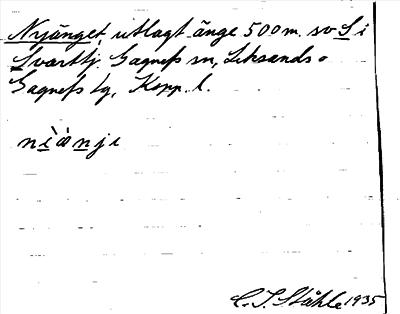 Nyänget, utlagt änge 500 m. sv S i
Svarttj. Gagnefs sn, Leksands o
Gagnefs tg, Kopp. l.
nìὰnji
C. I. Ståhle 1935